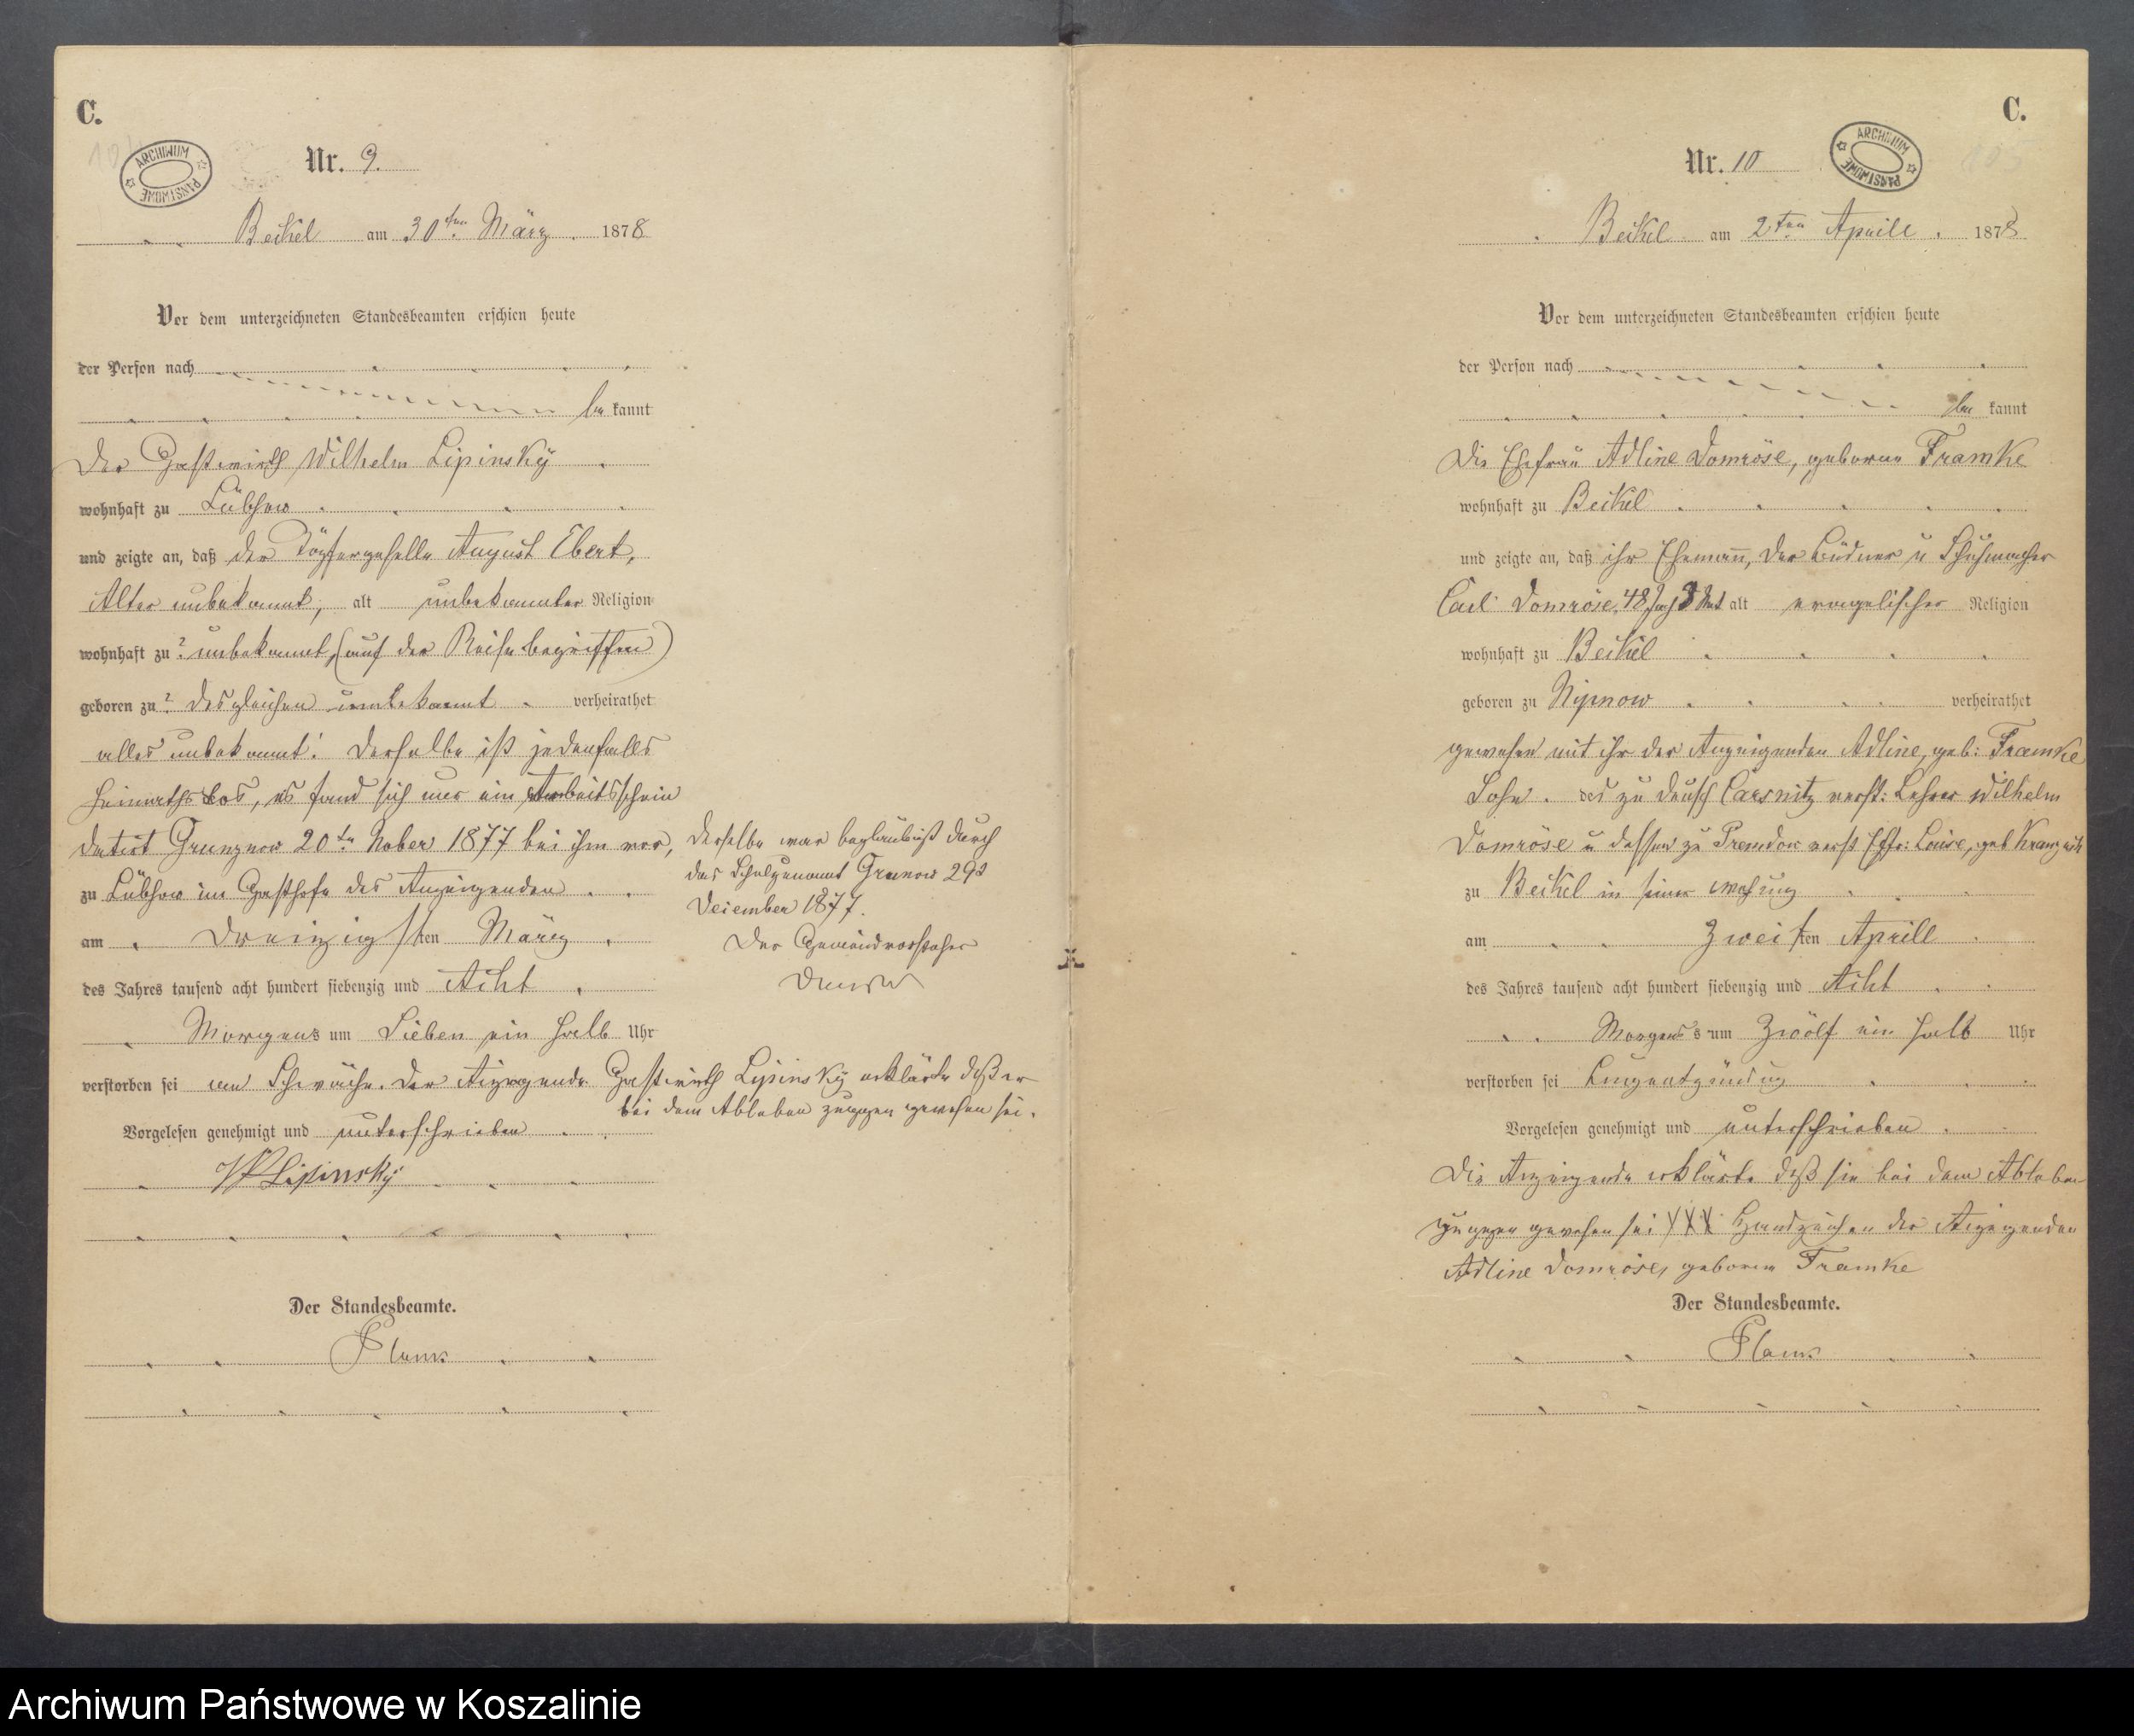 C.
ARCHIWUM PAŃSTWOWE
Nr. 9.
Beckel am 30ten März 1878
Vor dem unterzeichneten Standesbeamten erschien heute
der Person nach
be kannt
Der Gastwirth Wilhelm Lipinsky
wohnhaft zu Lübzow
und zeigte an, daß der Töpfergeselle August Ebert,
Alter unbekannt, alt unbekannter Religion
wohnhaft zu ? unbekannt, (auf der Reise begriffen)
geboren zu ? desgleichen unbekannt verheirathet
alles unbekannt! Derselbe ist jedenfalls
heimathslos, es fand sich nur ein Arbeitsschein
datirt 20te 1877 bei ihm vor,
Derselbe war beglaubigt durch
das Schulzenamt 29s
Decembre 1877.
zu Lübzow im Gasthofe des Anzeigenden
Der Gemeindevorsteher
am Dreizigsten März
des Jahres tausend acht hundert siebenzig und Acht
Morgens um Sieben ein halb Uhr
verstorben sei an Schwäche. Der Anzeigende Gastwirth Lipinsky erklärte daß er
bei dem Ableben zugegen gewesen sei.
Vorgelesen genehmigt und unterschrieben
W Lipinsky
Der Standesbeamte.
C.
ARCHIWUM PAŃSTWOWE
Nr. 10
Beckel am 2ten Aprill 1878
Vor dem unterzeichneten Standesbeamten erschien heute
der Person nach
be kannt
Die Ehefrau Adline Domröse, geborne Framke
wohnhaft zu Beckel
und zeigte an, daß ihr Ehemann, der Büdner u Schuhmacher
Carl Domröse, 48 Jah 8 Mt alt evangelischer Religion
wohnhaft zu Beckel
geboren zu Nipnow verheirathet
gewesen mit ihr der Anzeigenden Adline, geb: Framke
Sohn des zu Deutsch Carsnitz verst: Lehrer Wilhelm
Domröse u dessen zu verst Ehfr: Louise, geb
zu Beckel in seiner Wohung
am Zweiten Aprill
des Jahres tausend acht hundert siebenzig und Acht
Morgens um Zwölf ein halb Uhr
verstorben sei
Vorgelesen genehmigt und unterschrieben
Die Anzeigende erklärte daß sie bei dem Ableben
zugegen gewesen sei XXX Handzeichen der Anzeigenden
Adline Domröse, geborene Framke
Der Standesbeamte.
Archiwum Państwowe w Koszalinie